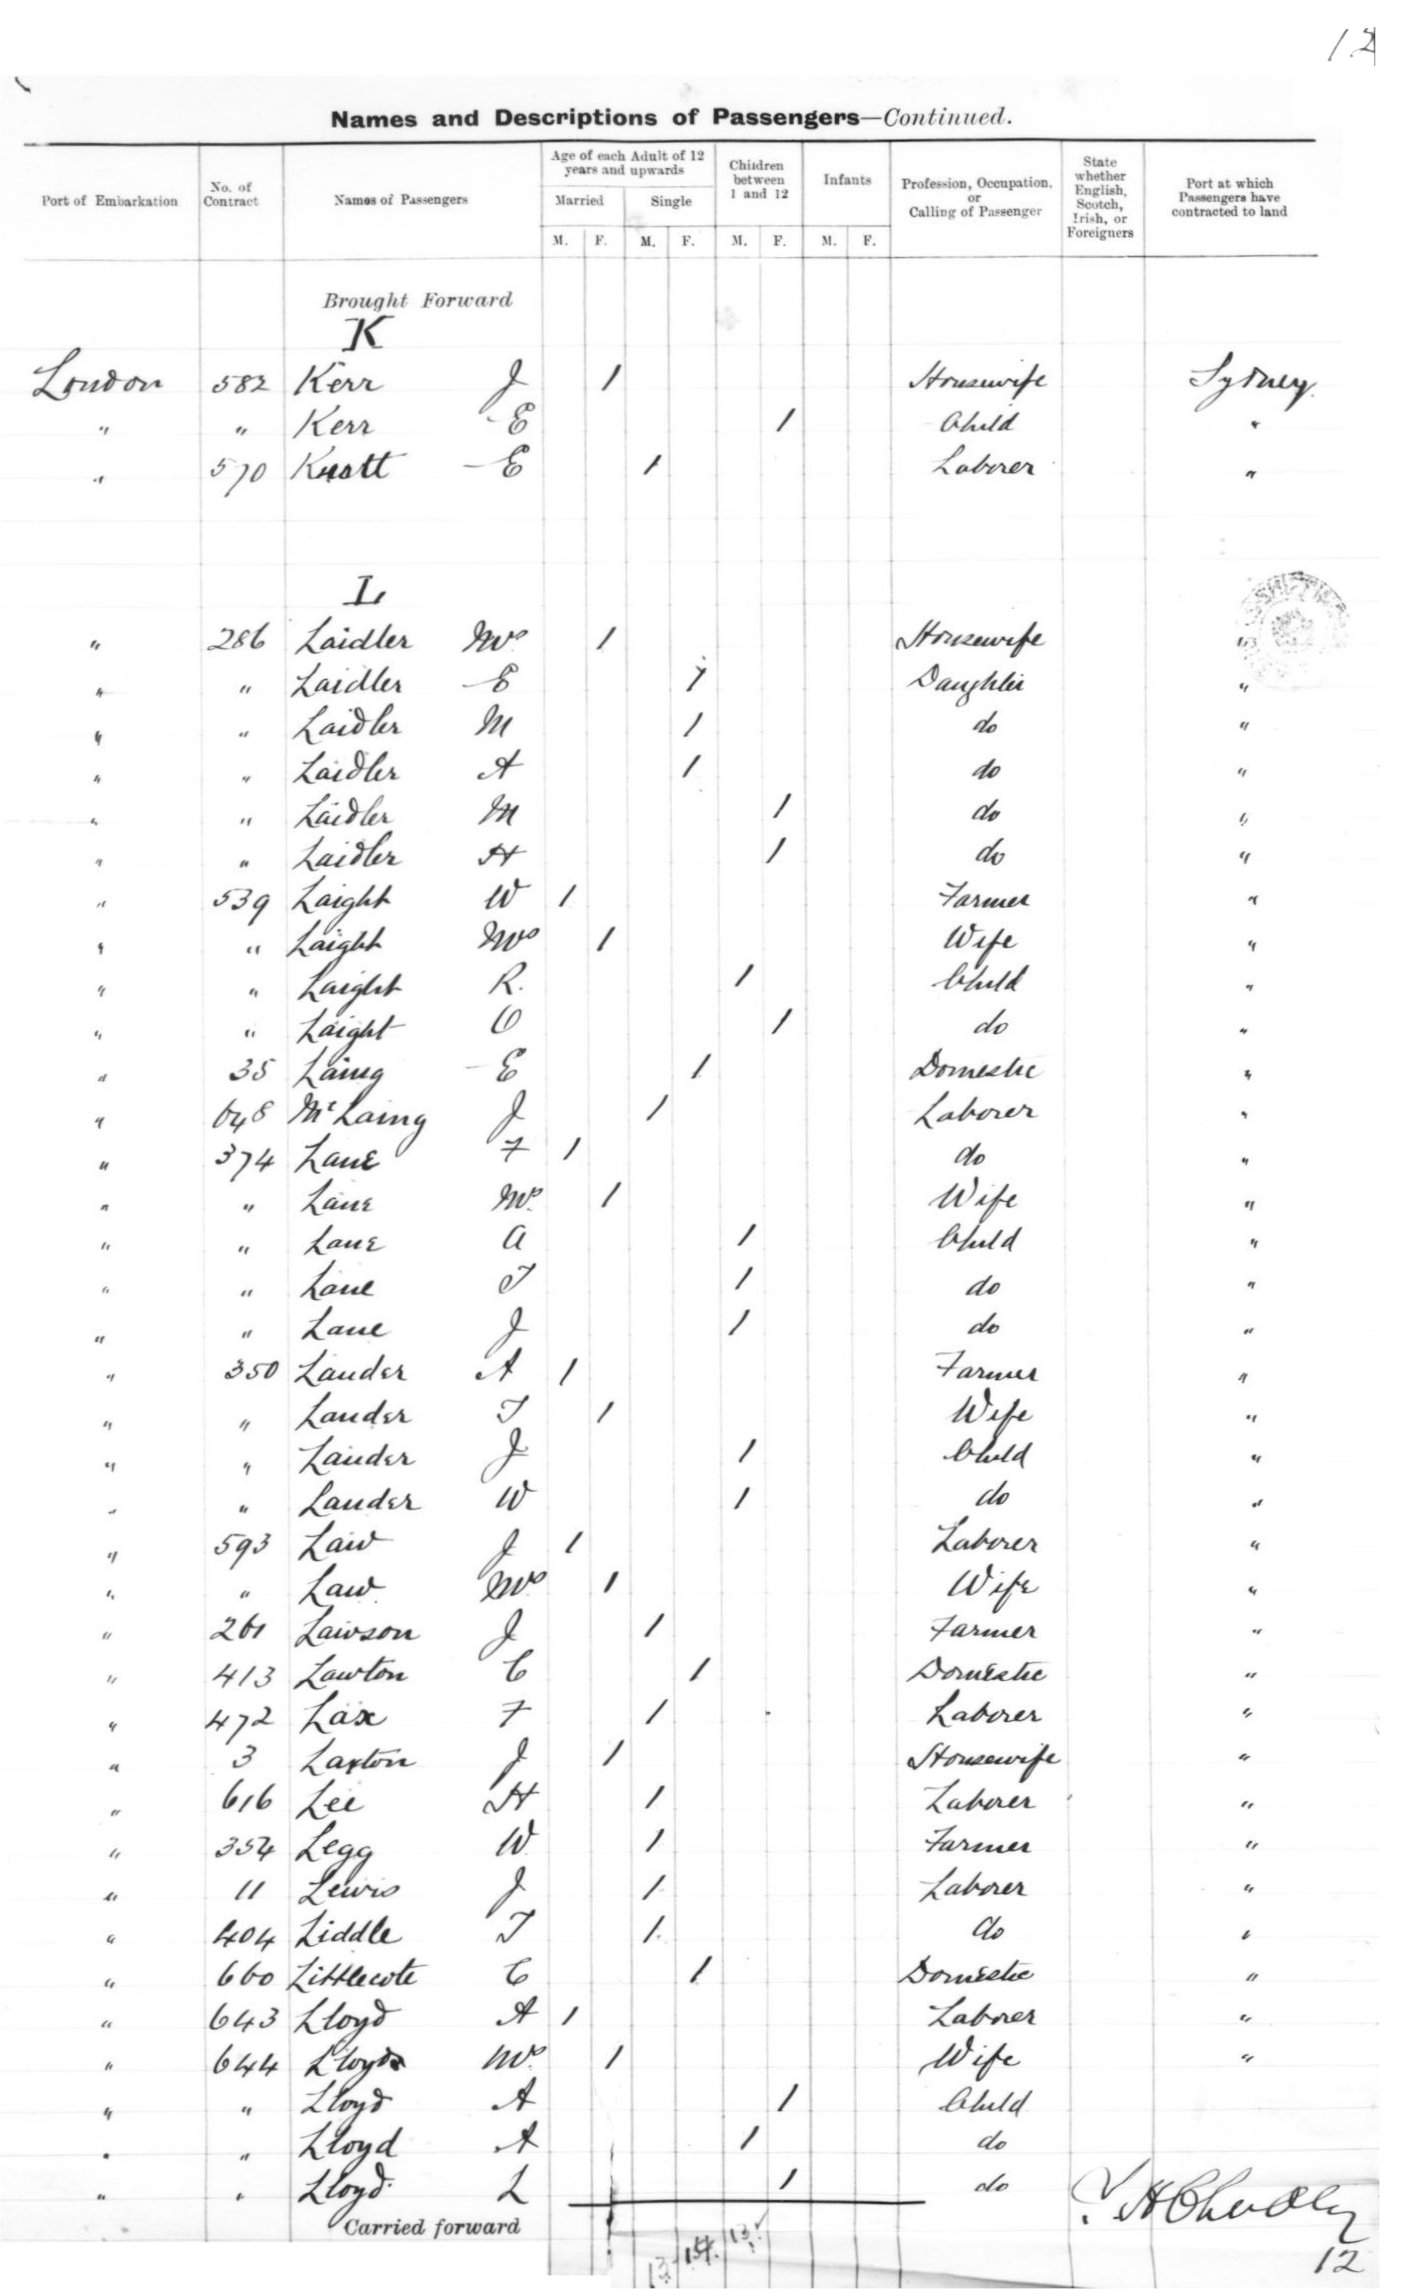 12
Names and Descriptions of Passengers—Continued.
Port of Embarkation No. of Contract Names of Passengers Age of each Adult of 12 years and upwards Married M. F. Single M. F. Children between 1 and 12 M. F. Infants M. F. Profession, Occupation, or Calling of Passenger State whether English, Scotch, Irish, or Foreigners Port at which Passengers have contracted to land
Brought Forward
K
London 582 Kerr J 1 Housewife Sydney
" " Kerr E 1 Child "
" 570 Knott E 1 Laborer "
L
" 286 Laidler Mrs 1 Housewife "
" " Laidler E 1 Daughter "
" " Laidler M 1 do "
" " Laidler A 1 do "
" " Laidler M 1 do "
" " Laidler H 1 do "
" 539 Laight W 1 Farmer "
" " Laight Mrs 1 Wife "
" " Laight R. 1 Child "
" " Laight O 1 do "
" 35 Laing E 1 Domestic "
" 648 McLaing J 1 Laborer "
" 374 Lane F 1 do "
" " Lane Mrs. 1 Wife "
" " Lane A 1 Child "
" " Lane T 1 do "
" " Lane J 1 do "
" 350 Lauder A 1 Farmer "
" " Lauder T 1 Wife "
" " Lauder J 1 Child "
" " Lauder W 1 do "
" 593 Law J 1 Laborer "
" " Law Mrs 1 Wife "
" 261 Lawson J 1 Farmer "
" 413 Lawton C 1 Domestic "
" 472 Lax F 1 Laborer "
" 3 Laxton J 1 Housewife "
" 616 Lee H 1 Laborer "
" 354 Legg W 1 Farmer "
" 11 Lewis J 1 Laborer "
" 404 Liddle T 1 do "
" 660 Littlecote C 1 Domestic "
" 643 Lloyd A 1 Laborer "
" 644 Lloyd Mrs. 1 Wife "
" " Lloyd A 1 Child
" " Lloyd A 1 do
" " Lloyd L 1 do
Carried forward
12